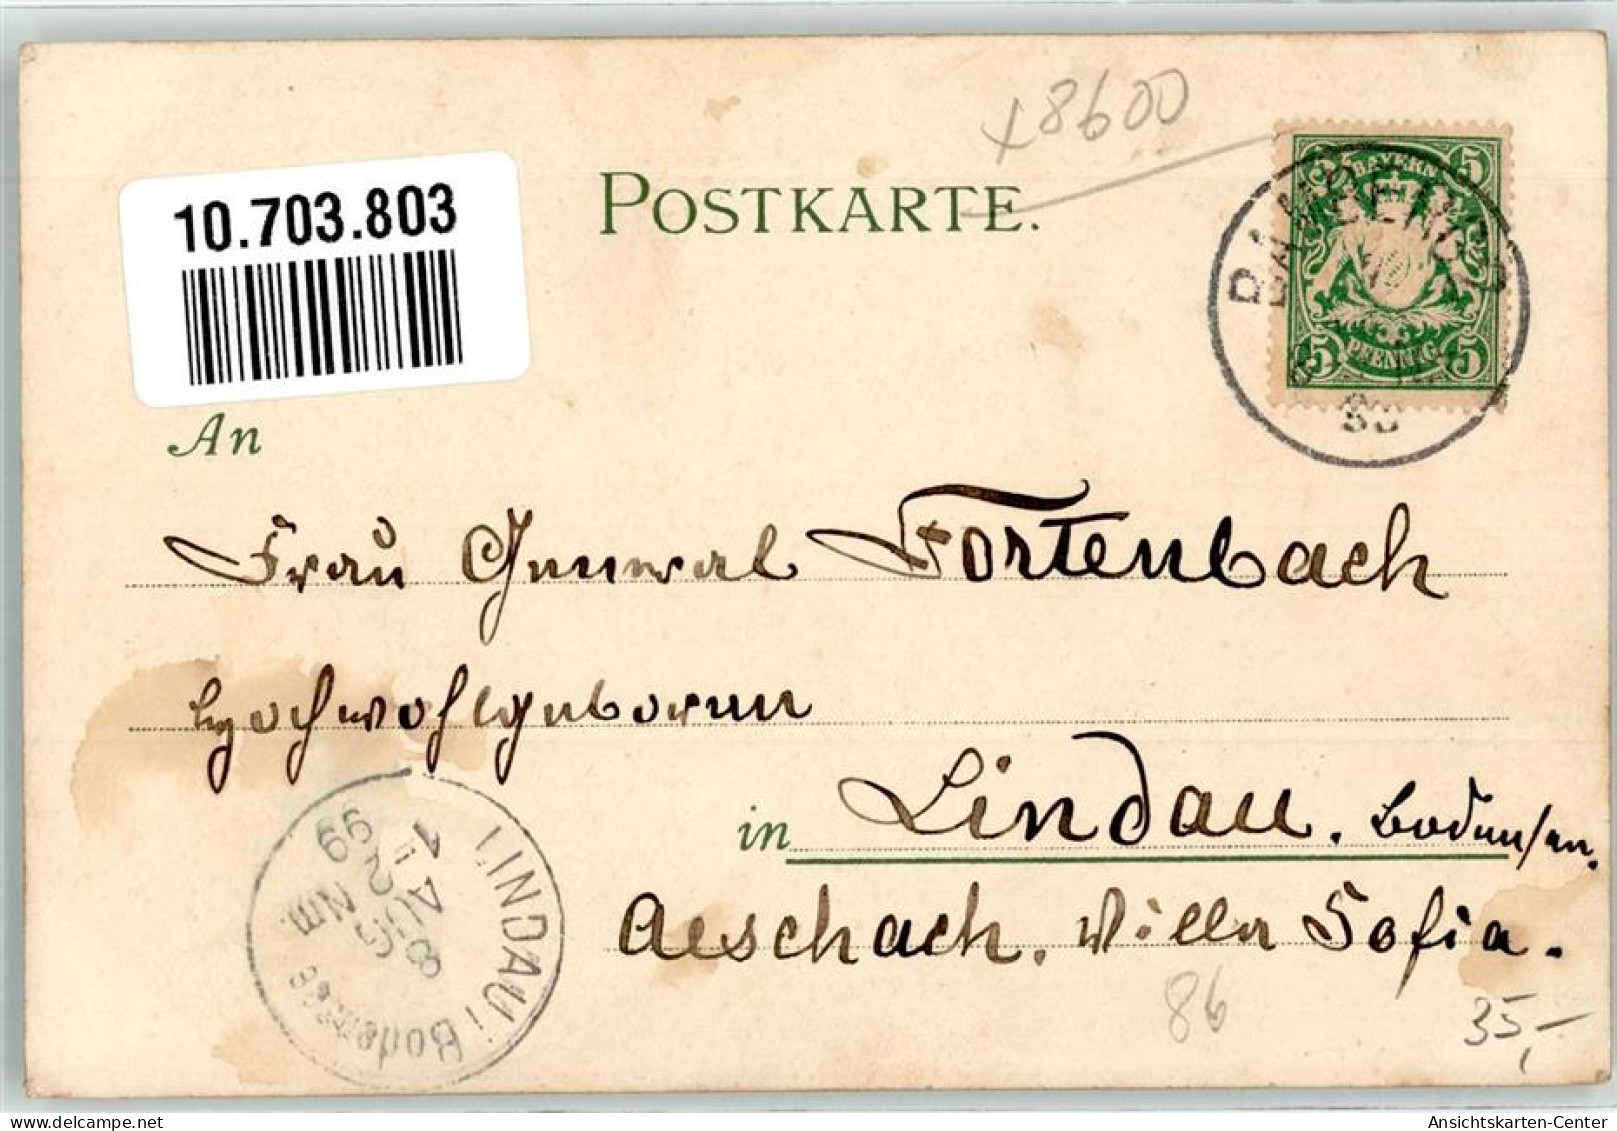 +8600
10.703.803
POSTKARTE.
BAYERN
5 5
PFENNIG
5 5
BAMBERG
99
An
Frau General Fortenbach
Hochwohlgeboren
in Lindau. Bodensee.
Aeschach. Villa Sofia.
LINDAU i Bodensee
1 AUG 8
99
Nm.
86
35,-
Ansichtskarten-Center